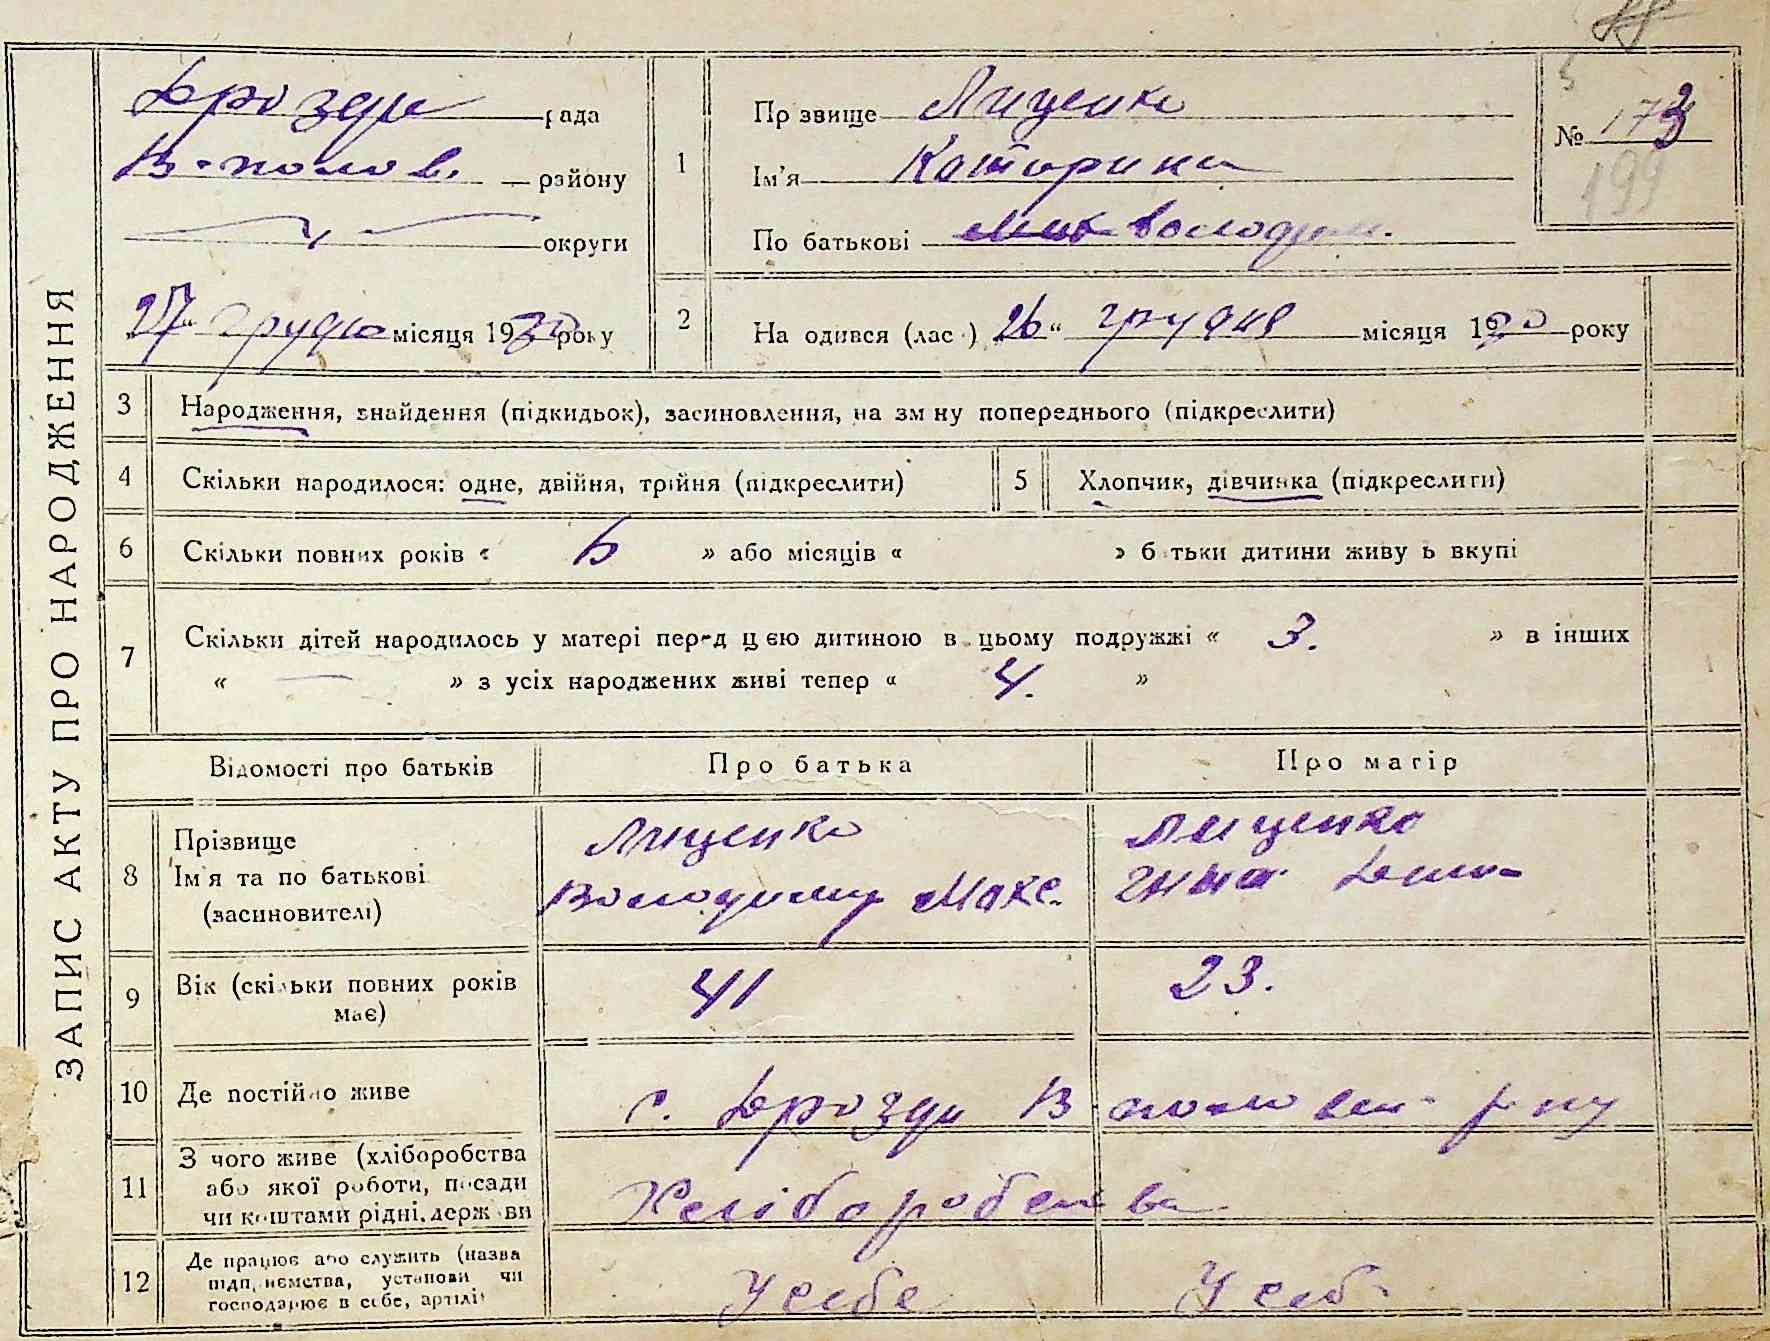 ЗАПИС АКТУ ПРО НАРОДЖЕННЯ
Дрозди рада
В-полов. району
округи
27 " грудня місяця 1930 року
1
Прзвище Лиценко
Ім'я Катерина
По батькові Володим.
№ 173
199
2
На одився (лас ) 26 " грудня місяця 1930 року
3
Народження, знайдення (підкидьок), засиновлення, на зм ну попереднього (підкреслити)
4
Скільки народилося: одне, двійня, трійня (підкреслити)
5
Хлопчик, дівчинка (підкреслити)
6
Скільки повних років « 6 » або місяців « » б тьки дитини живу ь вкупі
7
Скільки дітей народилось у матері перед цею дитиною в цьому подружжі « 3. » в інших
« — » з усіх народжених живі тепер « 4. »
Відомості про батьків
Про батька
Про матір
8
Прізвище
Ім'я та по батькові
(засиновителі)
Лиценко
Володимир Макс.
Лиценко
9
Вік (скільки повних років
має)
41
23.
10
Де постійно живе
с. Дрозди В-половец. р-ну
11
З чого живе (хліборобства
або якої роботи, посади
чи коштами рідні, держ ви
Хліборобства
12
Де працює або служить (назва
підп иємства, установи чи
господарює в себе, артілі
У себе
У себ